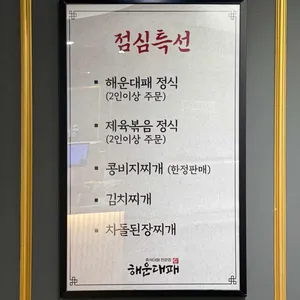 점심특선
해운대패 정식
(2인이상 주문)
제육볶음 정식
(2인이상 주문)
콩비지찌개 (한정판매)
김치찌개
차돌된장찌개
해운대패